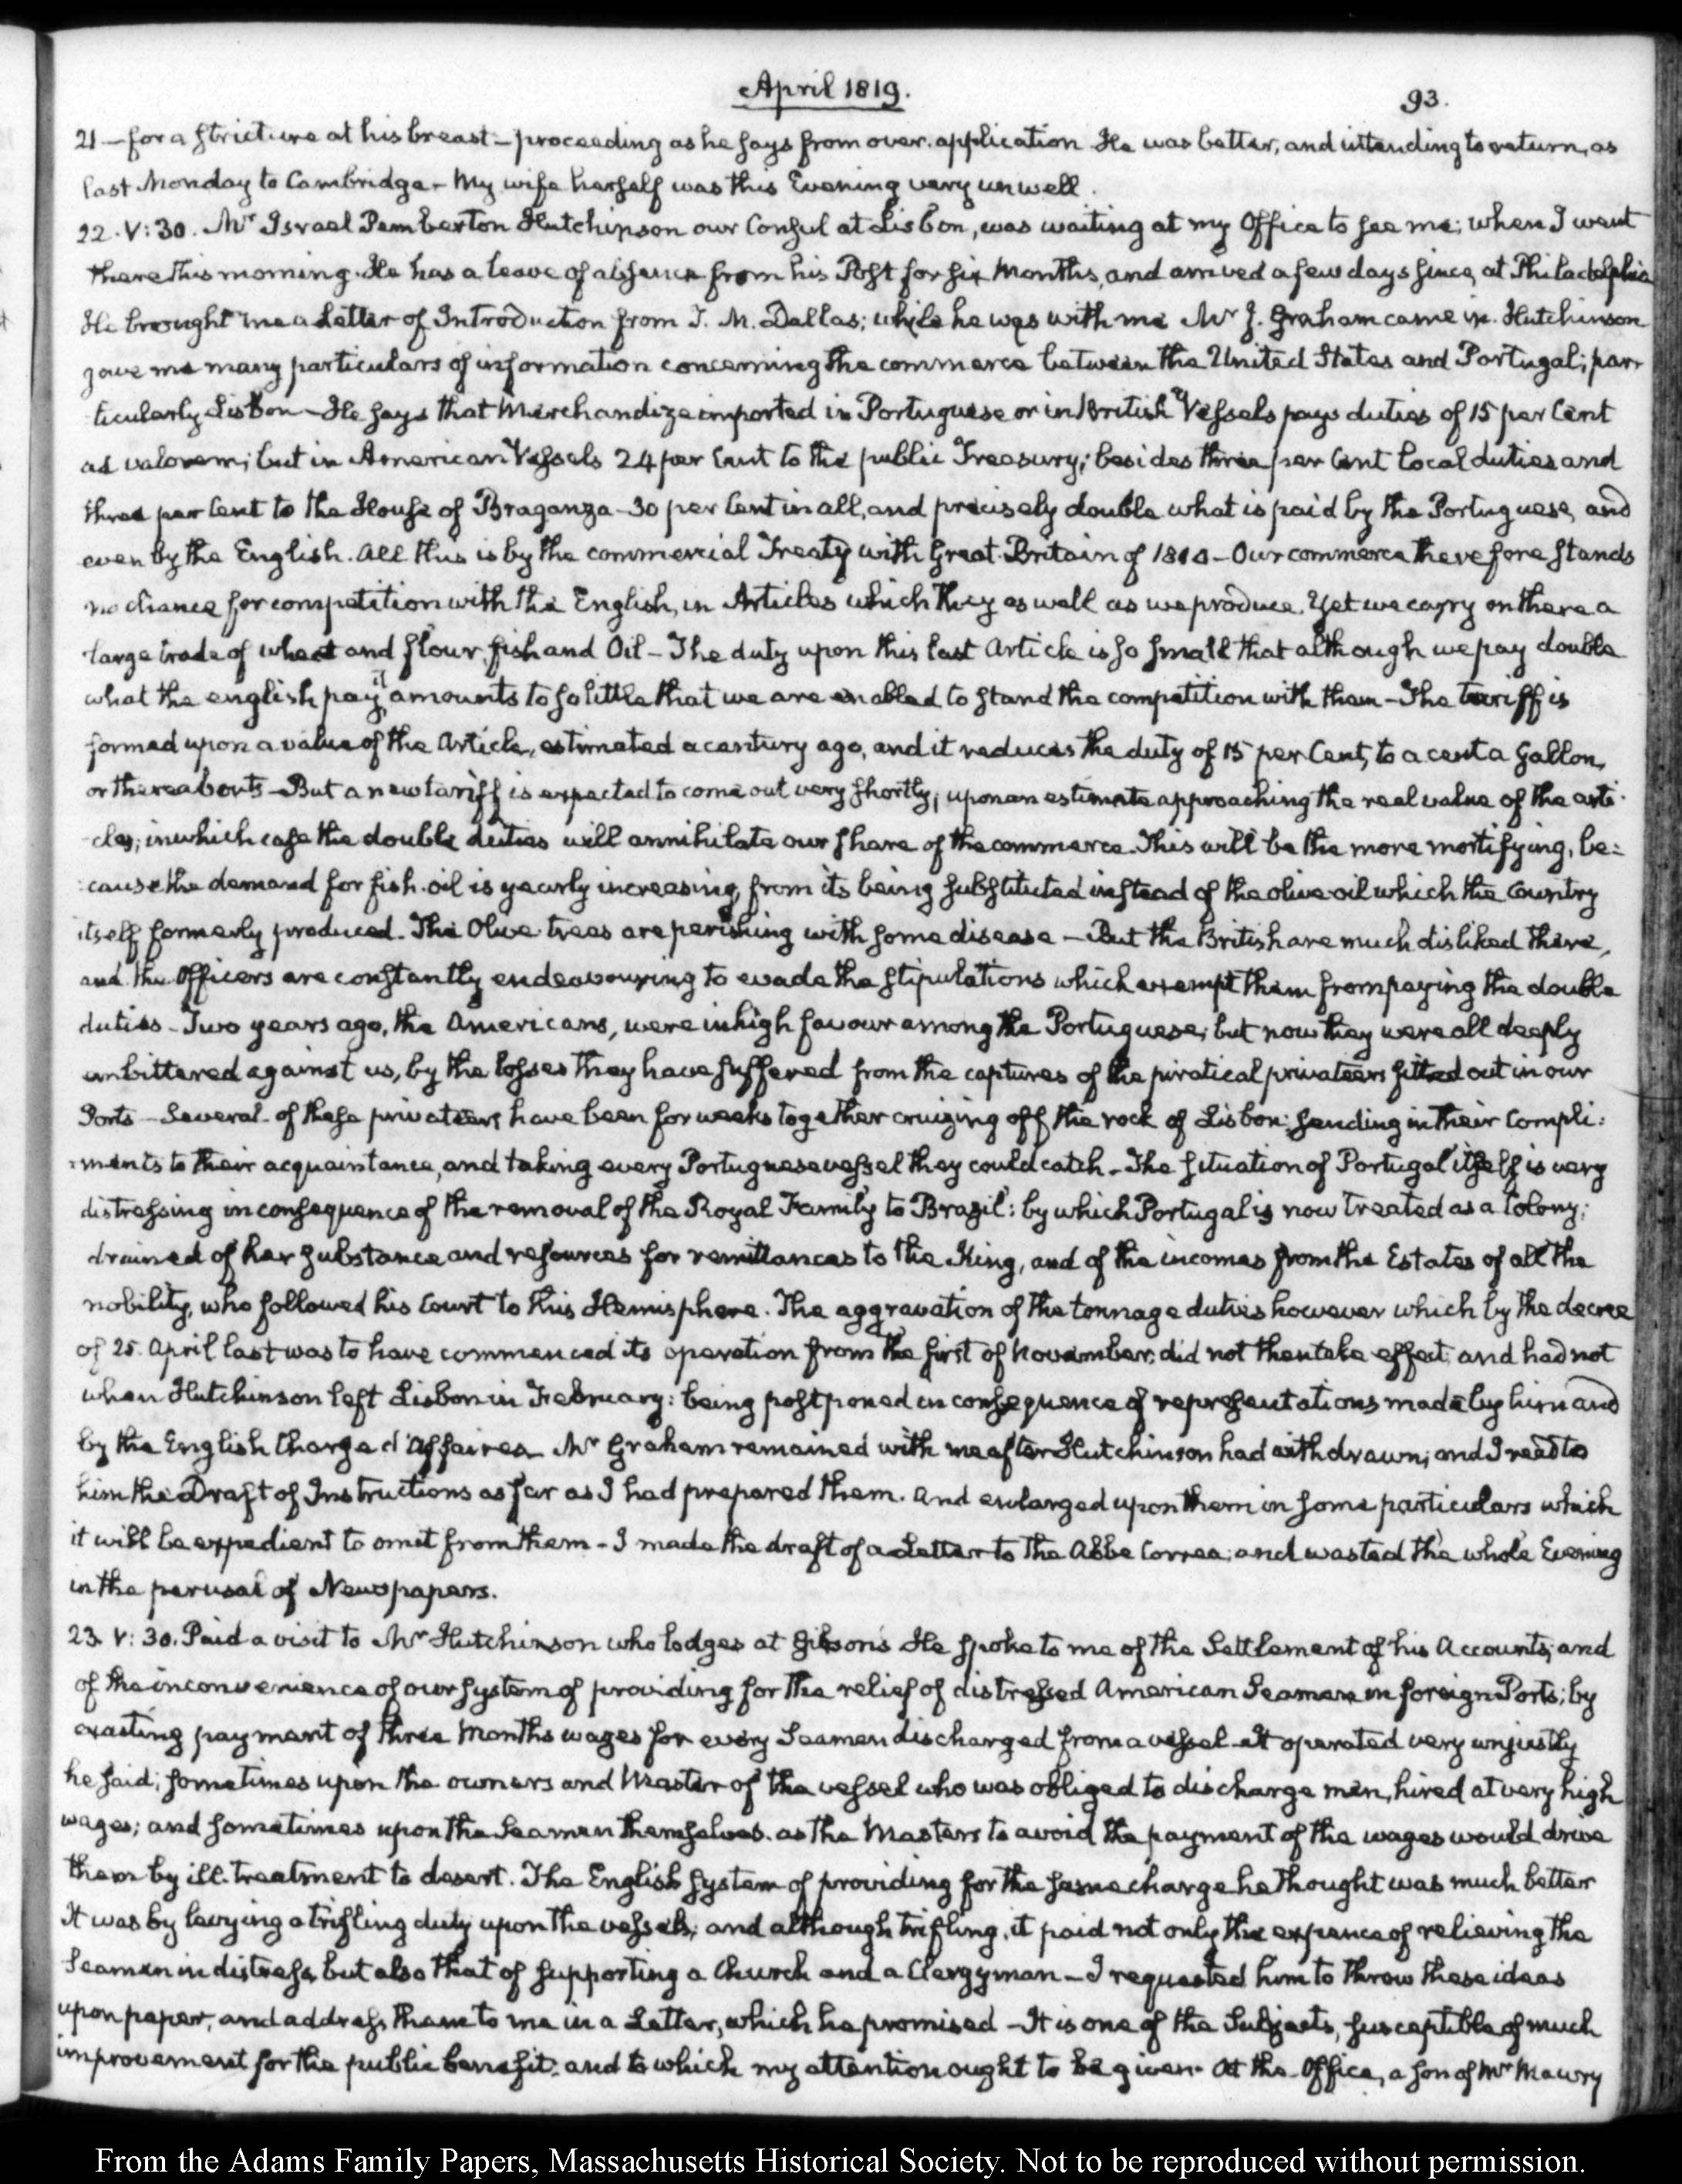 April 1819.
93.
21 — for a stricture at his breast — proceeding as he says from over. application He was better, and intending to return, as
last Monday to Cambridge — My wife herself was this Evening very unwell.
22. V:30. Mr Israel Pemberton Hutchinson our Consul at Lisbon, was waiting at my Office to see me; when I went
there this morning. He has a leave of absence from his Post for six Months, and arrived a few days since, at Philadelphia
He brought me a Letter of Introduction from T. M. Dallas; while he was with me Mr J. Graham came in. Hutchinson
gave me many particulars of information concerning the commerce between the United States and Portugal; par-
ticularly Lisbon — He says that Merchandize imported in Portuguese or in British Vessels pays duties of 15 per Cent
ad valorem; but in American Vessels 24 per Cent to the public Treasury; besides three per Cent local duties and
three per Cent to the House of Braganza — 30 per Cent in all, and precisely double what is paid by the Portuguese, and
even by the English. All this is by the commercial Treaty with Great-Britain of 1810 — Our commerce therefore stands
no chance for competition with the English, in Articles which they as well as we produce. Yet we carry on there a
large trade of wheat and flour, fish and Oil — The duty upon this last Article is so small that although we pay double
what the english pay, it amounts to so little that we are enabled to stand the competition with them — The tariff is
formed upon a value of the Article, estimated a century ago, and it reduces the duty of 15 per Cent, to a cent a Gallon,
or thereabouts — But a new tariff is expected to come out very shortly, upon an estimate approaching the real value of the arti-
-cles; in which case the double duties will annihilate our share of the commerce. This will be the more mortifying, be:
:cause the demand for fish-oil is yearly increasing, from its being substituted instead of the olive oil which the Country
itself formerly produced. The Olive trees are perishing with some disease — But the British are much disliked there,
and the Officers are constantly endeavouring to evade the stipulations which exempt them from paying the double
duties — Two years ago, the Americans, were in high favour among the Portuguese; but now they were all deeply
embittered against us, by the losses they have suffered from the captures of the piratical privateers fitted out in our
Ports — Several of these privateers have been for weeks together cruizing off the rock of Lisbon; sending in their Compli:
:ments to their acquaintance, and taking every Portuguese vessel they could catch — The situation of Portugal itself is very
distressing in consequence of the removal of the Royal Family to Brazil: by which Portugal is now treated as a Colony;
drained of her substance and resources for remittances to the King, and of the incomes from the Estates of all the
nobility, who followed his Court to this Hemisphere. The aggravation of the tonnage duties however which by the decree
of 25. April last was to have commenced its operation from the first of November, did not then take effect, and had not
when Hutchinson left Lisbon in February: being postponed in consequence of representations made by him and
by the English Chargé d'Affaires Mr Graham remained with me after Hutchinson had withdrawn; and I read to
him the Draft of Instructions as far as I had prepared them. And enlarged upon them in some particulars which
it will be expedient to omit from them — I made the draft of a Letter to the Abbe Correa; and wasted the whole Evening
in the perusal of Newspapers.
23. V:30. Paid a visit to Mr Hutchinson who lodges at Gibson's He spoke to me of the Settlement of his Accounts; and
of the inconvenience of our system of providing for the relief of distressed American Seamen in foreign Ports; by
exacting payment of three Months wages for every Seamen discharged from a vessel — It operated very unjustly
he said; sometimes upon the owners and Master of the vessel who was obliged to discharge men, hired at very high
wages; and sometimes upon the Seamen themselves. as the Masters to avoid the payment of the wages would drive
them by ill-treatment to desert. The English system of providing for the same charge he thought was much better
It was by levying a trifling duty upon the vessels; and although trifling, it paid not only the expence of relieving the
Seamen in distress, but also that of supporting a Church and a Clergyman — I requested him to throw these ideas
upon paper, and address them to me in a Letter, which he promised — It is one of the Subjects, susceptible of much
improvement for the public benefit. and to which my attention ought to be given. At the Office, a son of Mr Maury
From the Adams Family Papers, Massachusetts Historical Society. Not to be reproduced without permission.